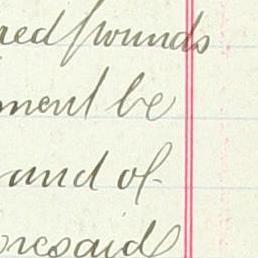 red pounds
ment be
and of
oresaid